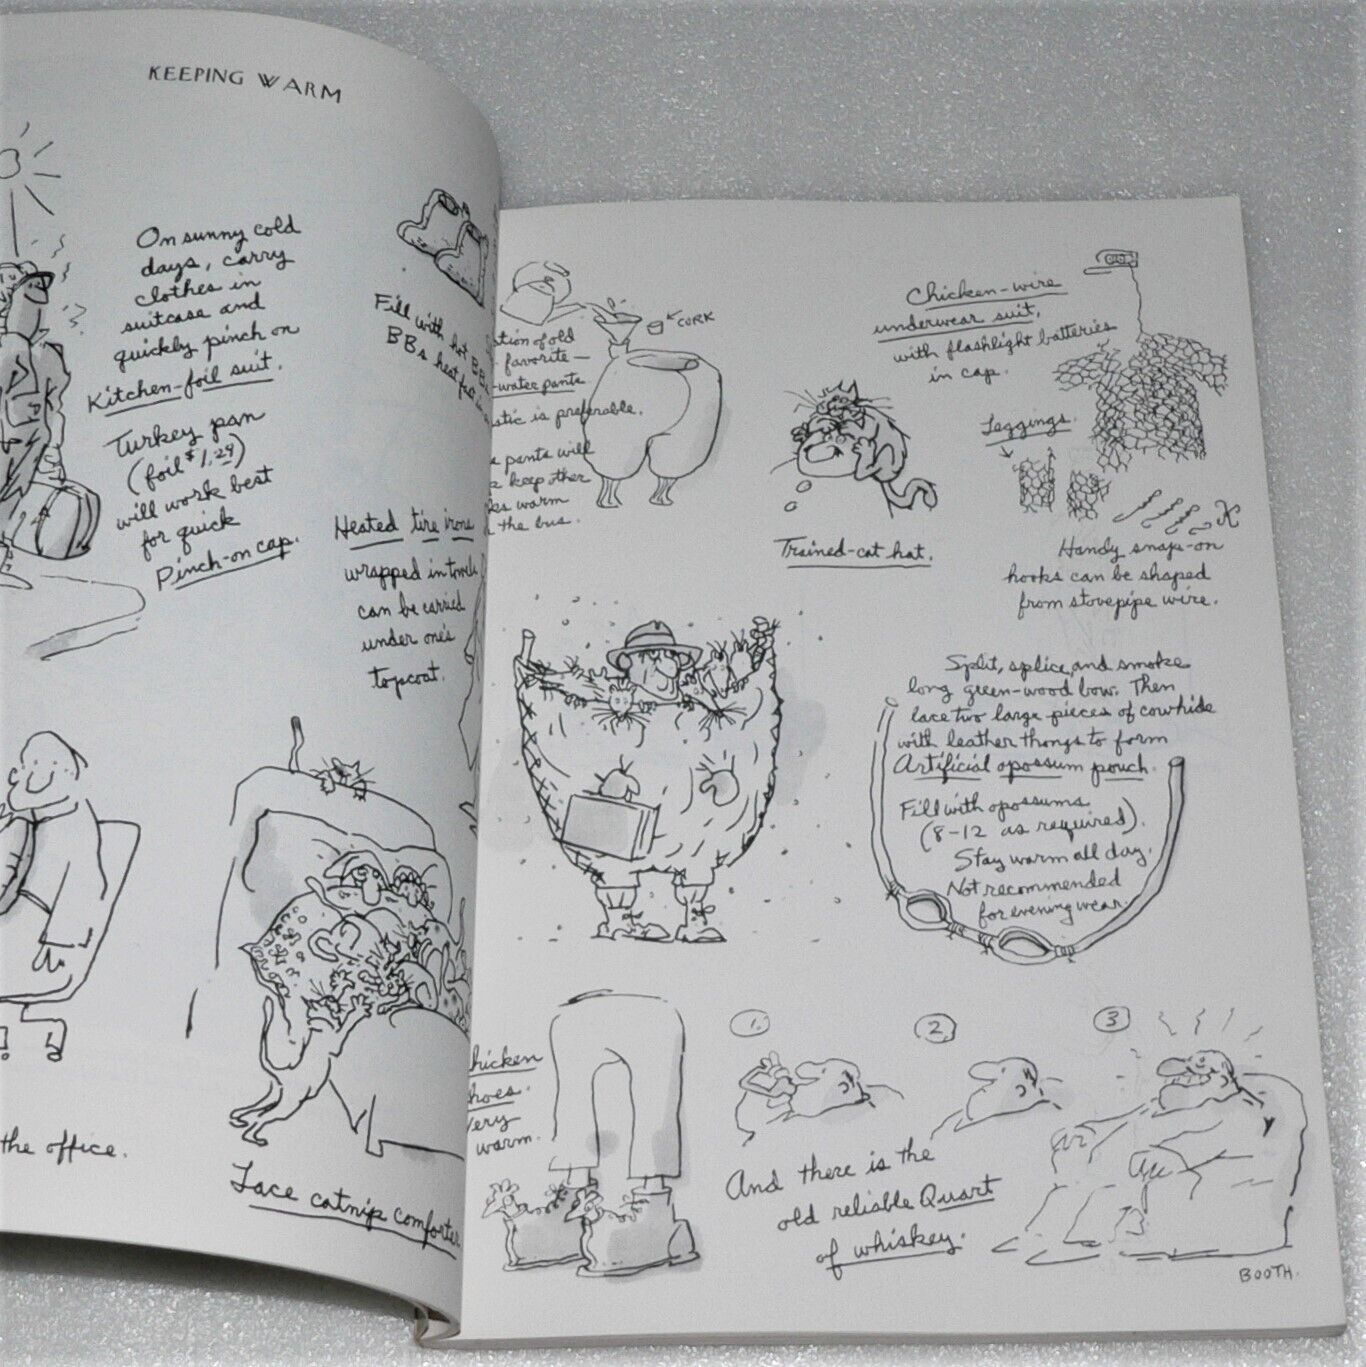 KEEPING WARM
On sunny cold
days, carry
clothes in
suitcase and
quickly pinch on
Kitchen-foil suit.
Turkey pan
(foil $1.29)
will work best
for quick
Pinch-on cap.
Fill with hot BBs
BBs heat
Heated tire irons
wrapped in towels
can be carried
under one's
topcoat.
the office.
Lace catnip comforter
CORK
ation of old
favorite—
-water pants
stic is preferable.
pants will
keep other
warm
the bus.
Trained-cat hat.
Chicken-wire
underwear suit,
with flashlight batteries
in cap.
Leggings.
Handy snap-on
hooks can be shaped
from stovepipe wire.
Split, splice, and smoke
long green-wood bow. Then
lace two large pieces of cowhide
with leather thongs to form
Artificial opossum pouch.
Fill with opossums
(8-12 as required).
Stay warm all day.
Not recommended
for evening wear.
hicken
hoes.
ery
warm.
1.
2
3
And there is the
old reliable Quart
of whiskey.
BOOTH.